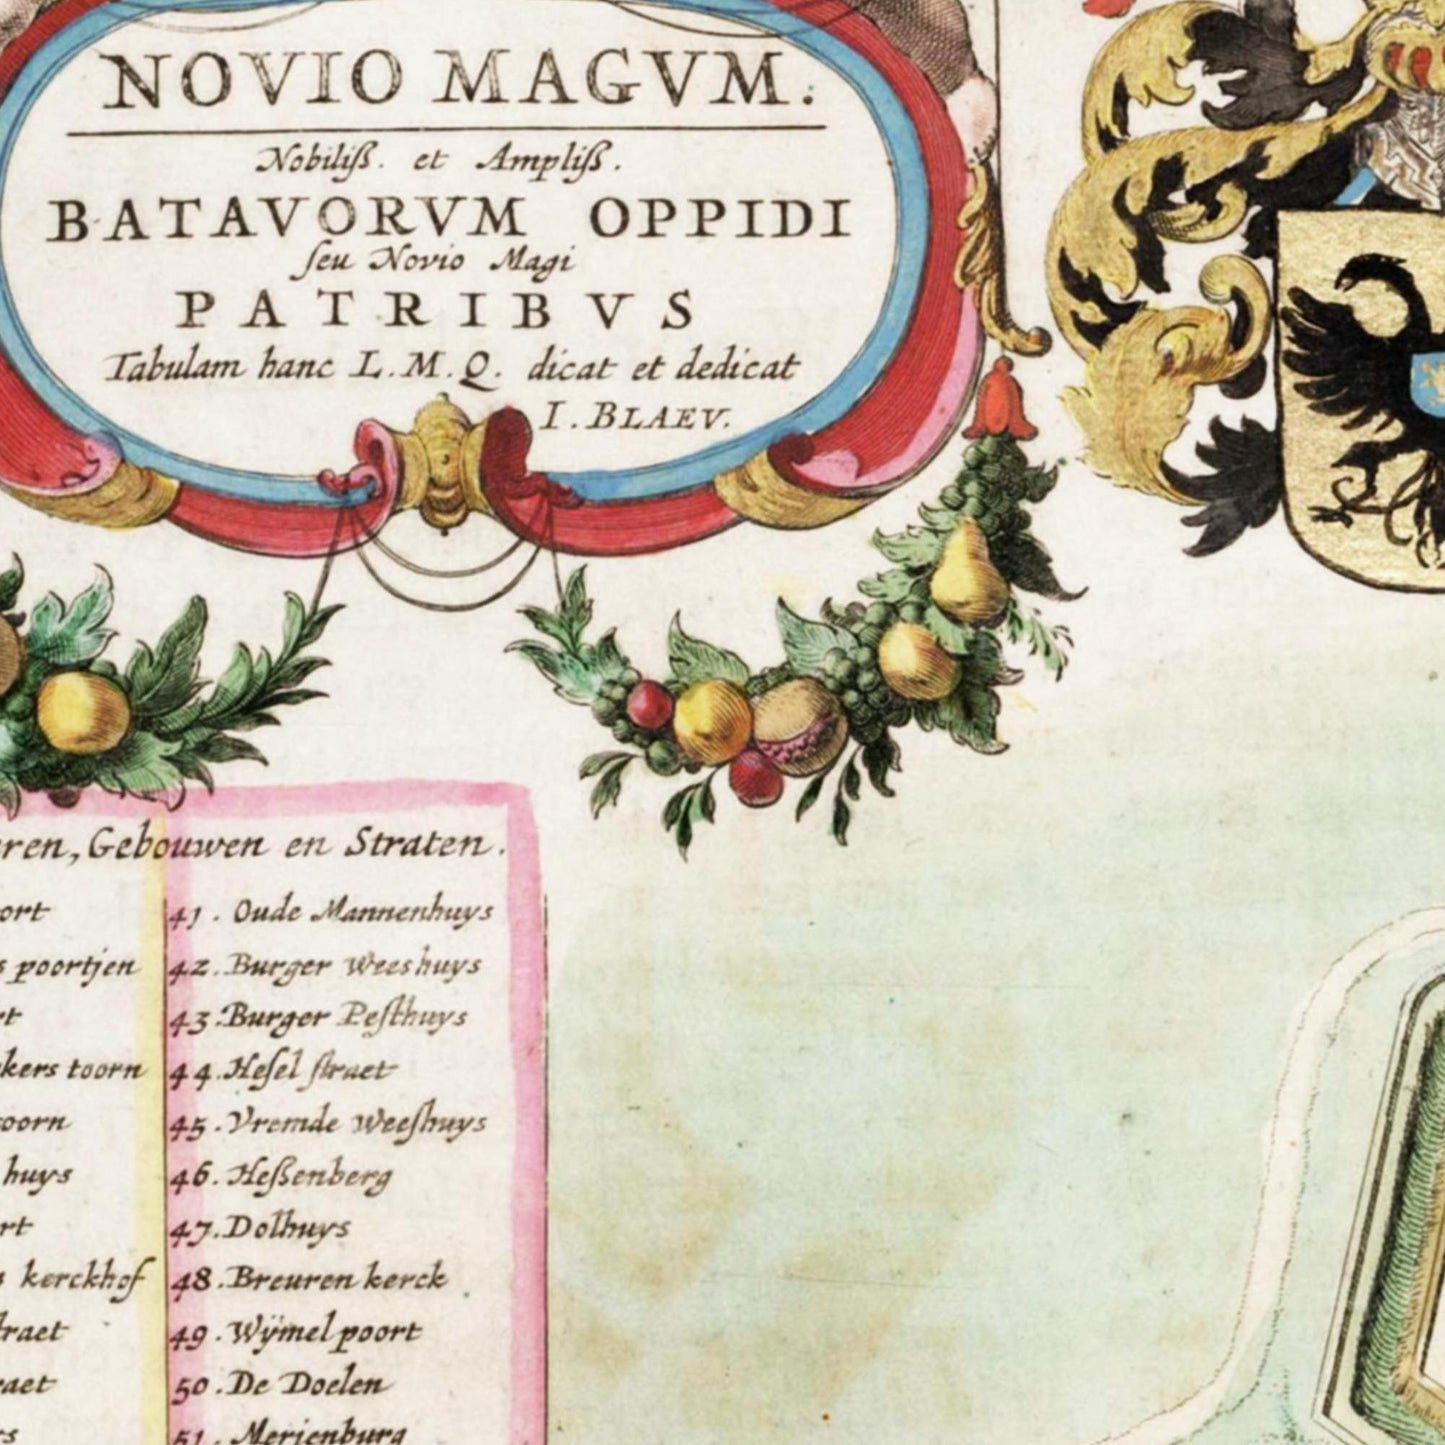 NOVIO MAGVM.
Nobiliß. et Ampliß.
BATAVORVM OPPIDI
seu Novio Magi
PATRIBVS
Tabulam hanc L. M. Q. dicat et dedicat
I. BLAEV.
ren, Gebouwen en Straten.
ort
41. Oude Mannenhuys
s poortjen
42. Burger Weeshuys
rt
43. Burger Pesthuys
kers toorn
44. Hesel straet
toorn
45. Vremde Weeshuys
huys
46. Heßenberg
rt
47. Dolhuys
s kerckhof
48. Breuren kerck
traet
49. Wÿmel poort
raet
50. De Doelen
rs
51. Merienburg